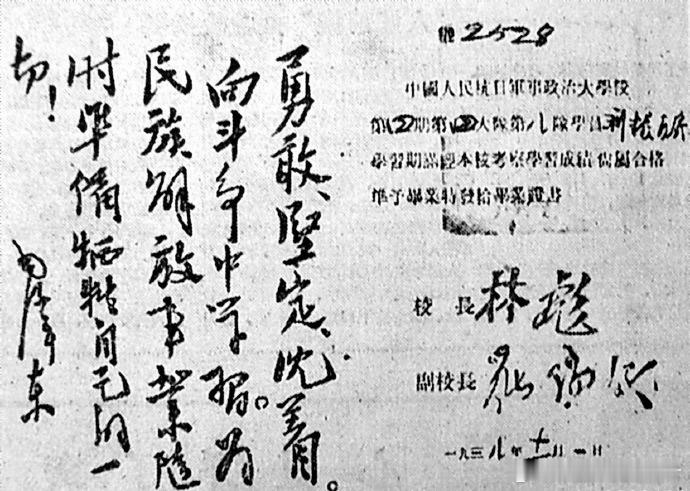 勇敢、堅定、沉着。
向斗争中学習。为
民族解放事業隨
时準備牺牲自己的一
切！
毛澤东
2528
中國人民抗日軍事政治大學校
第四期第四大隊第八隊學員劉
學習期滿經本校考察學習成績尚屬合格
準予畢業特發給畢業證書
校長 林彪
副校長 羅瑞卿
一九三八年十月一日